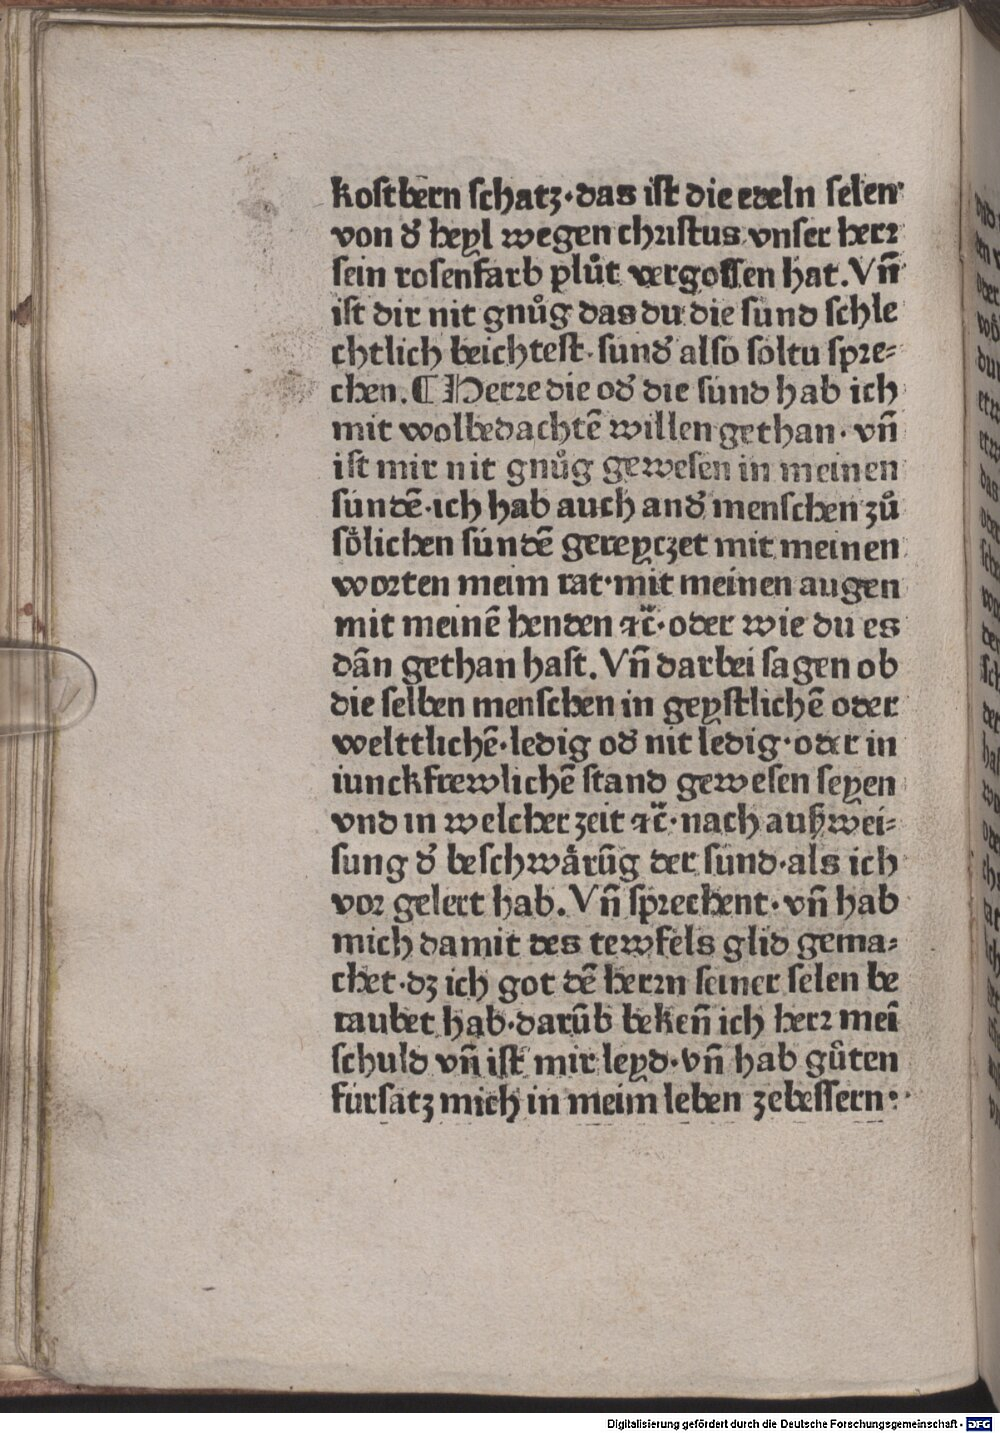 kostbern schatz·das ist die edeln selen
von ð heyl wegen christus vnser herr
sein rosenfarb plůt vergossen hat.Vñ
ist dir nit gnůg das du die sund schle
chtlich beichtest·sunð also soltu spre⸗
chen.¶ Herre die oð die sund hab ich
mit wolbedachtē willen gethan·vñ
ist mir nit gnůg gewesen in meinen
sundē·ich hab auch anð menschen zů
sölichen sündē gereyczet mit meinen
worten meim rat·mit meinen augen
mit meinē henden ⁊c̈·oder wie du es
dān gethan hast.Vñ darbei sagen ob
die selben menschen in geystlichē oder
welttlichē·ledig oð nit ledig·oder in
iunckfrewlichē stand gewesen seyen
vnd in welcher zeit ⁊c̈·nach außwei⸗
sung ð beschwärūg der sund·als ich
vor gelert hab.Vñ sprechent·vñ hab
mich damit des tewfels glid gema⸗
chet·dz ich got dē herrn seiner selen be
raubet hab·darūb bekeñ ich herr meī
schuld vñ ist mir leyd·vñ hab gůten
fürsatz mich in meim leben zebessern·
Digitalisierung gefördert durch die Deutsche Forschungsgemeinschaft - DFG